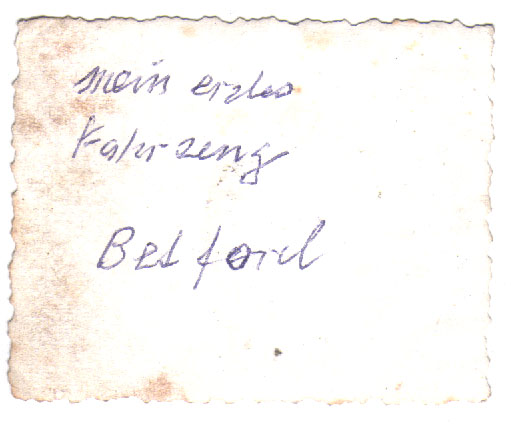 mein erstes
Fahrzeug
Betford